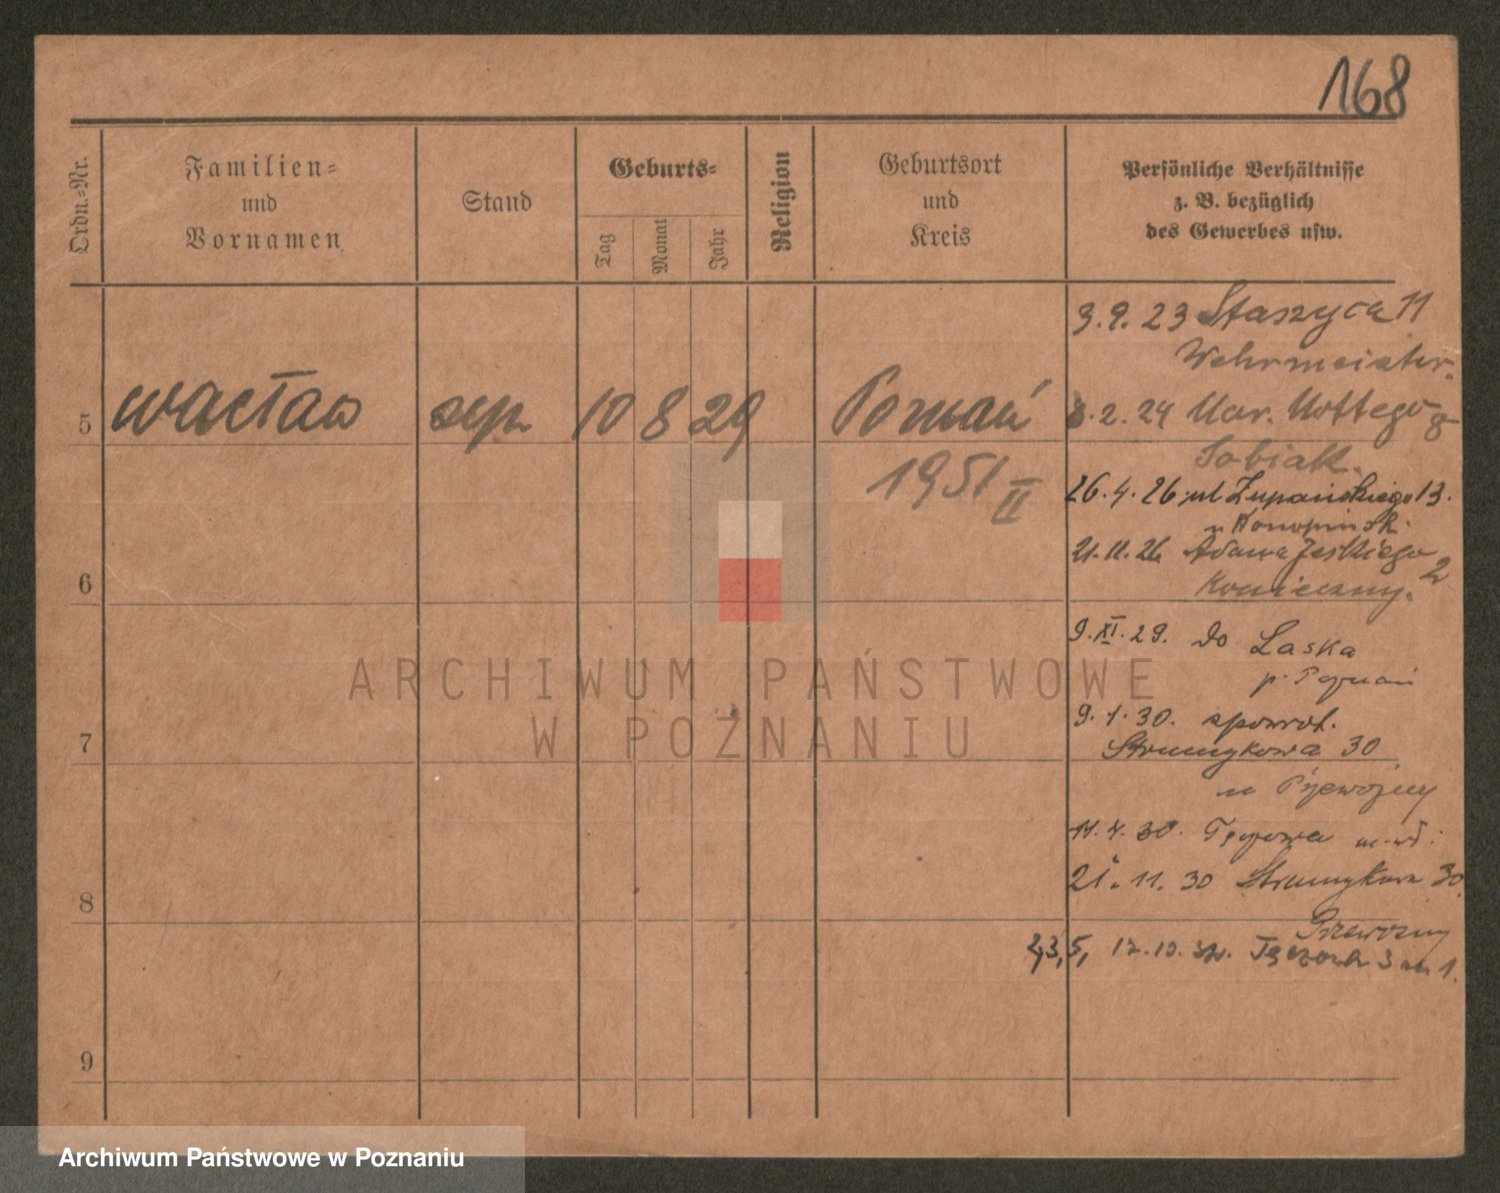 168
Ordn.-Nr.
Familien-
und
Vornamen
Stand
Geburts-
Tag
Monat
Jahr
Religion
Geburtsort
und
Kreis
Persönliche Verhältnisse
z. B. bezüglich
des Gewerbes usw.
3.9.23 Staszyca 11
Wehrmeister.
5 Wacław 10 8 29 Poznań
.2.24 Mar. Mottego 8
Sobiak.
1951 II
26.4.26 ul Żupańskiego 13.
u Konopiński
21.11.26 Adama Jeskiego 2
Konieczny.
6
9.XI.29. do Laska
p. Poznań
9.1.30. spowrot.
Strumykowa 30
7
u Przewoźny
11.4.30.
21.11.30 Strumykowa 30
8
Przewoźny
2,3,5, 17.10. Tęczowa 3 m 1.
9
ARCHIWUM PAŃSTWOWE
W POZNANIU
Archiwum Państwowe w Poznaniu